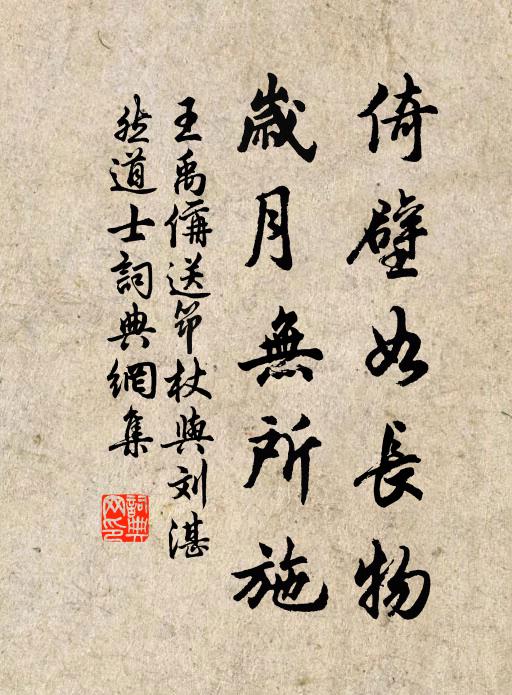 倚壁如長物
歲月無所施
王禹偁送筇杖與刘湛
然道士詞典網集
詞典
网印